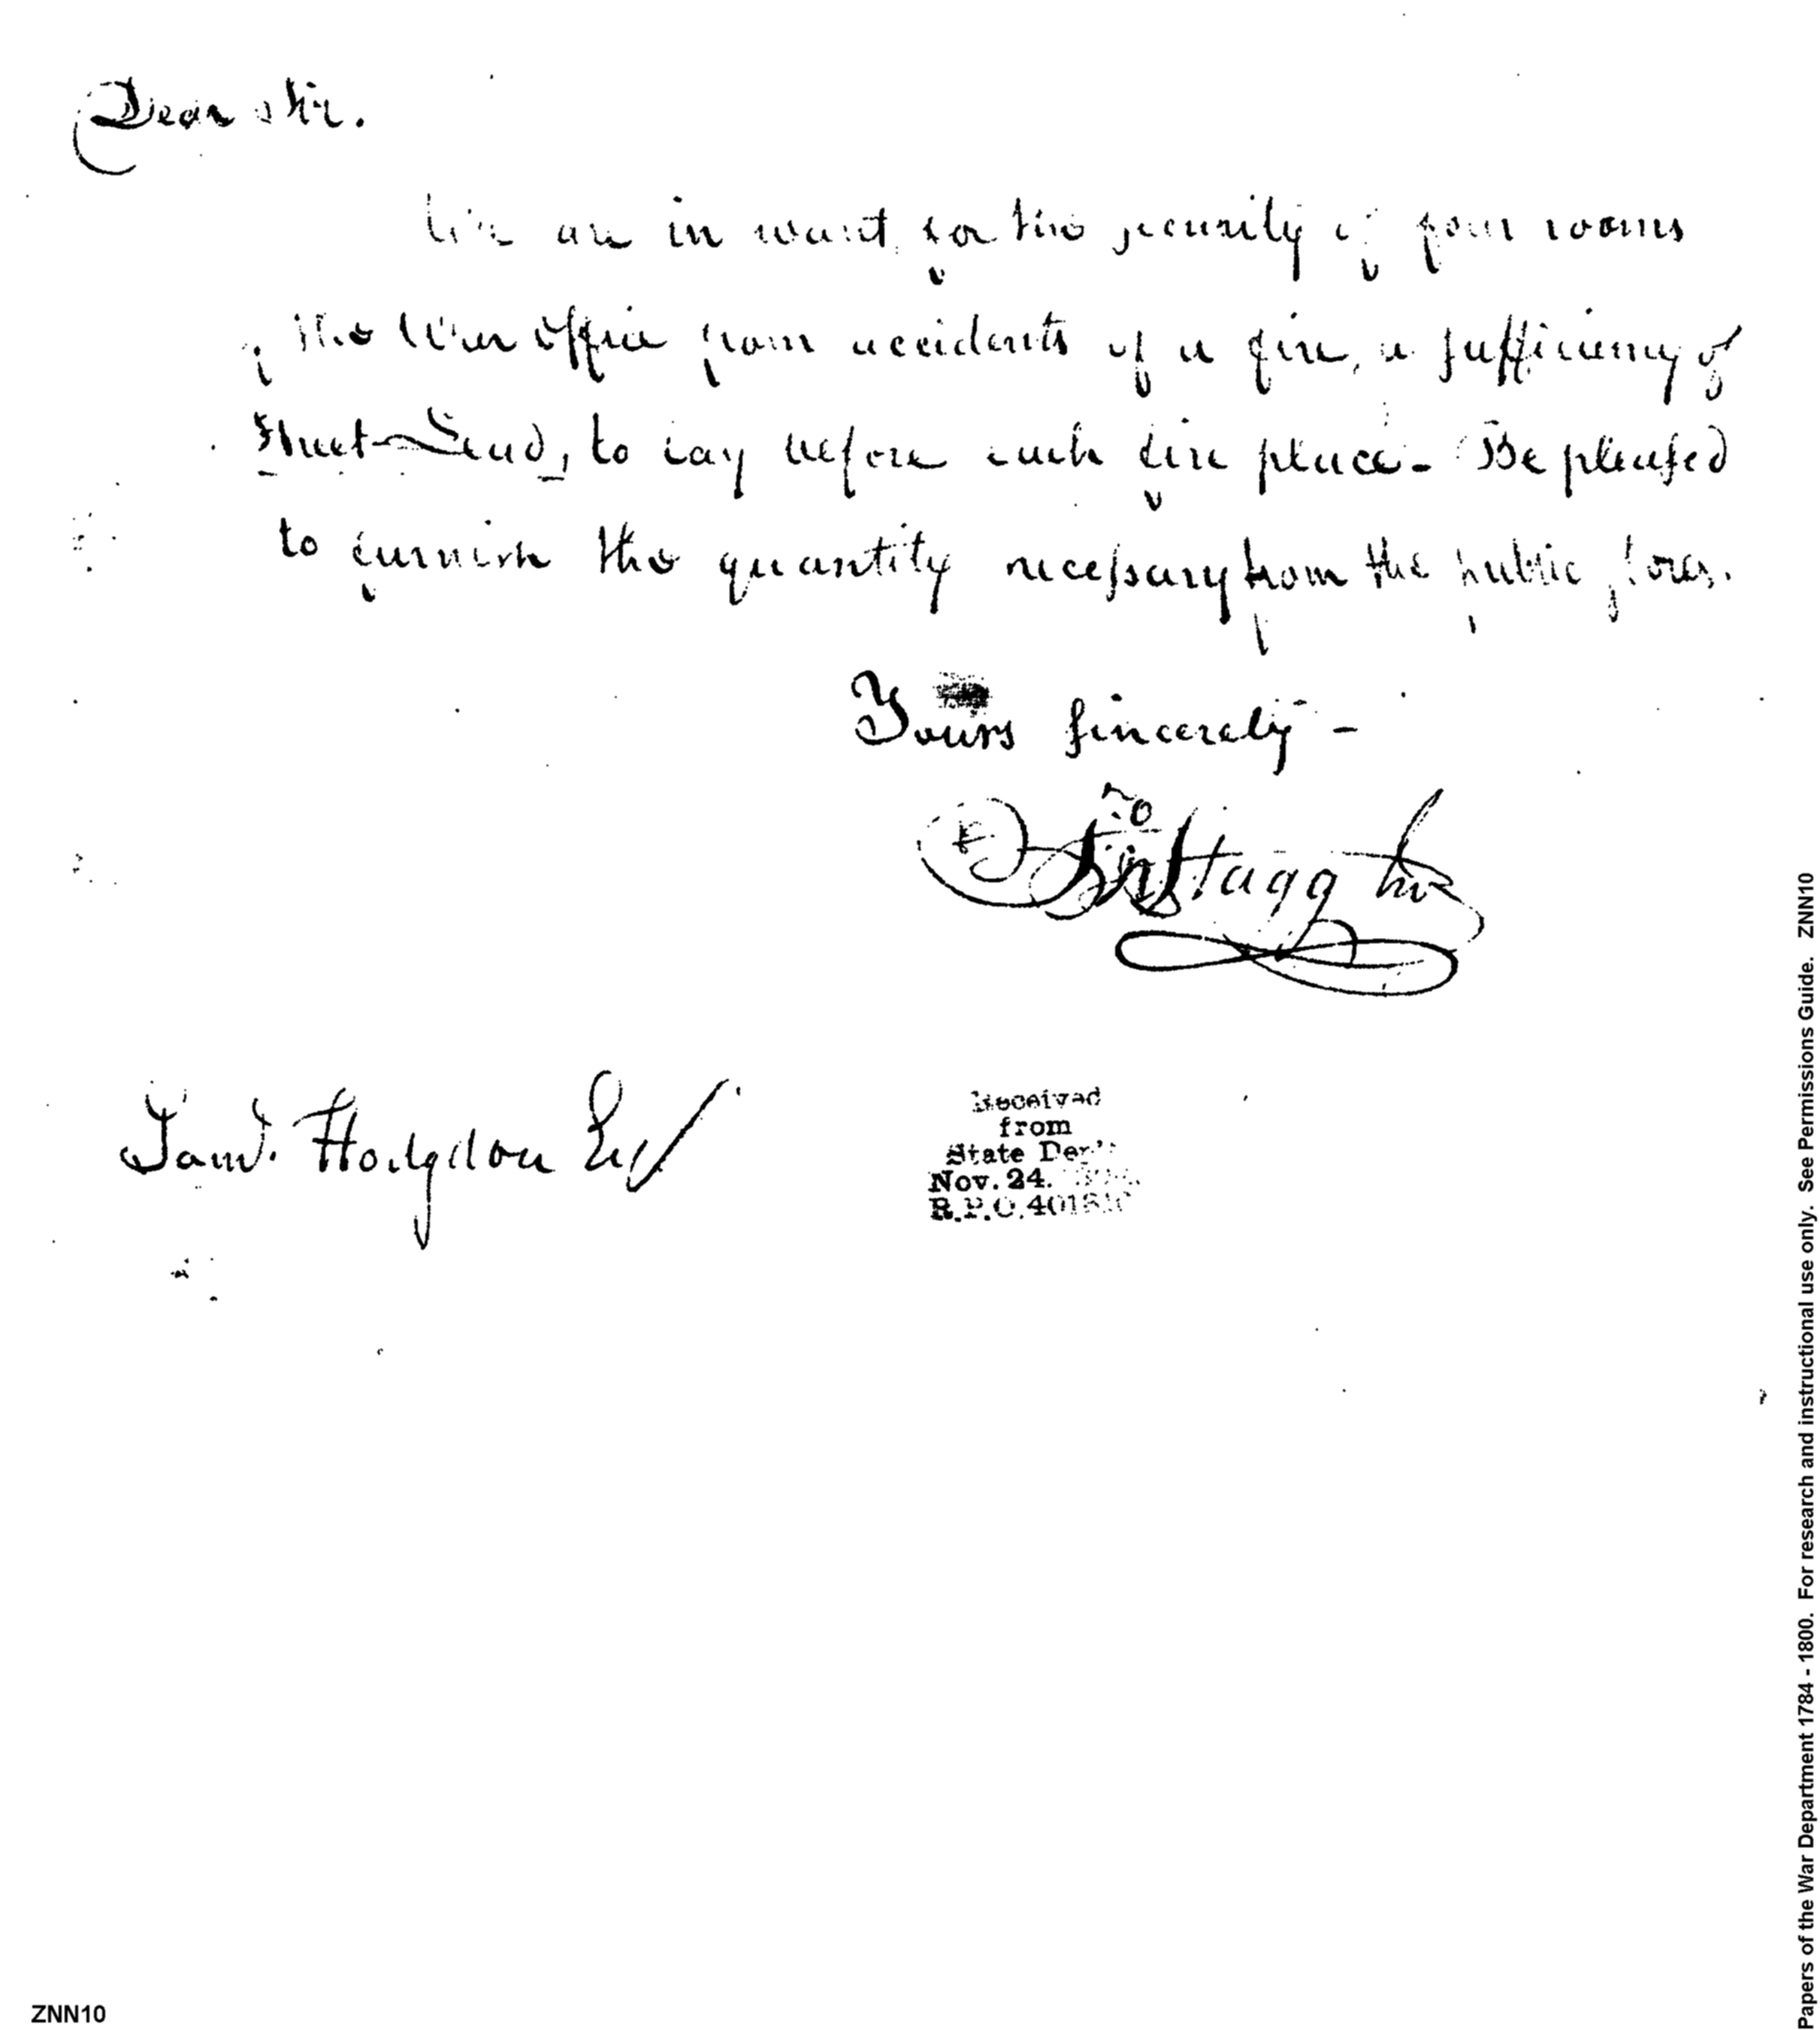 Dear Sir.
We are in want for the security of four rooms
of the War Office from accidents of a fire, a sufficiency of
Sheet-Lead, to lay before each fire place - Be pleased
to furnish the quantity necessary from the public stores.
Yours sincerely -
Jno Stagg Junr
Saml. Hodgdon Esq
Received
from
State Dept
Nov. 24.
R.P.O. 4018
ZNN10
Papers of the War Department 1784 - 1800. For research and instructional use only. See Permissions Guide. ZNN10